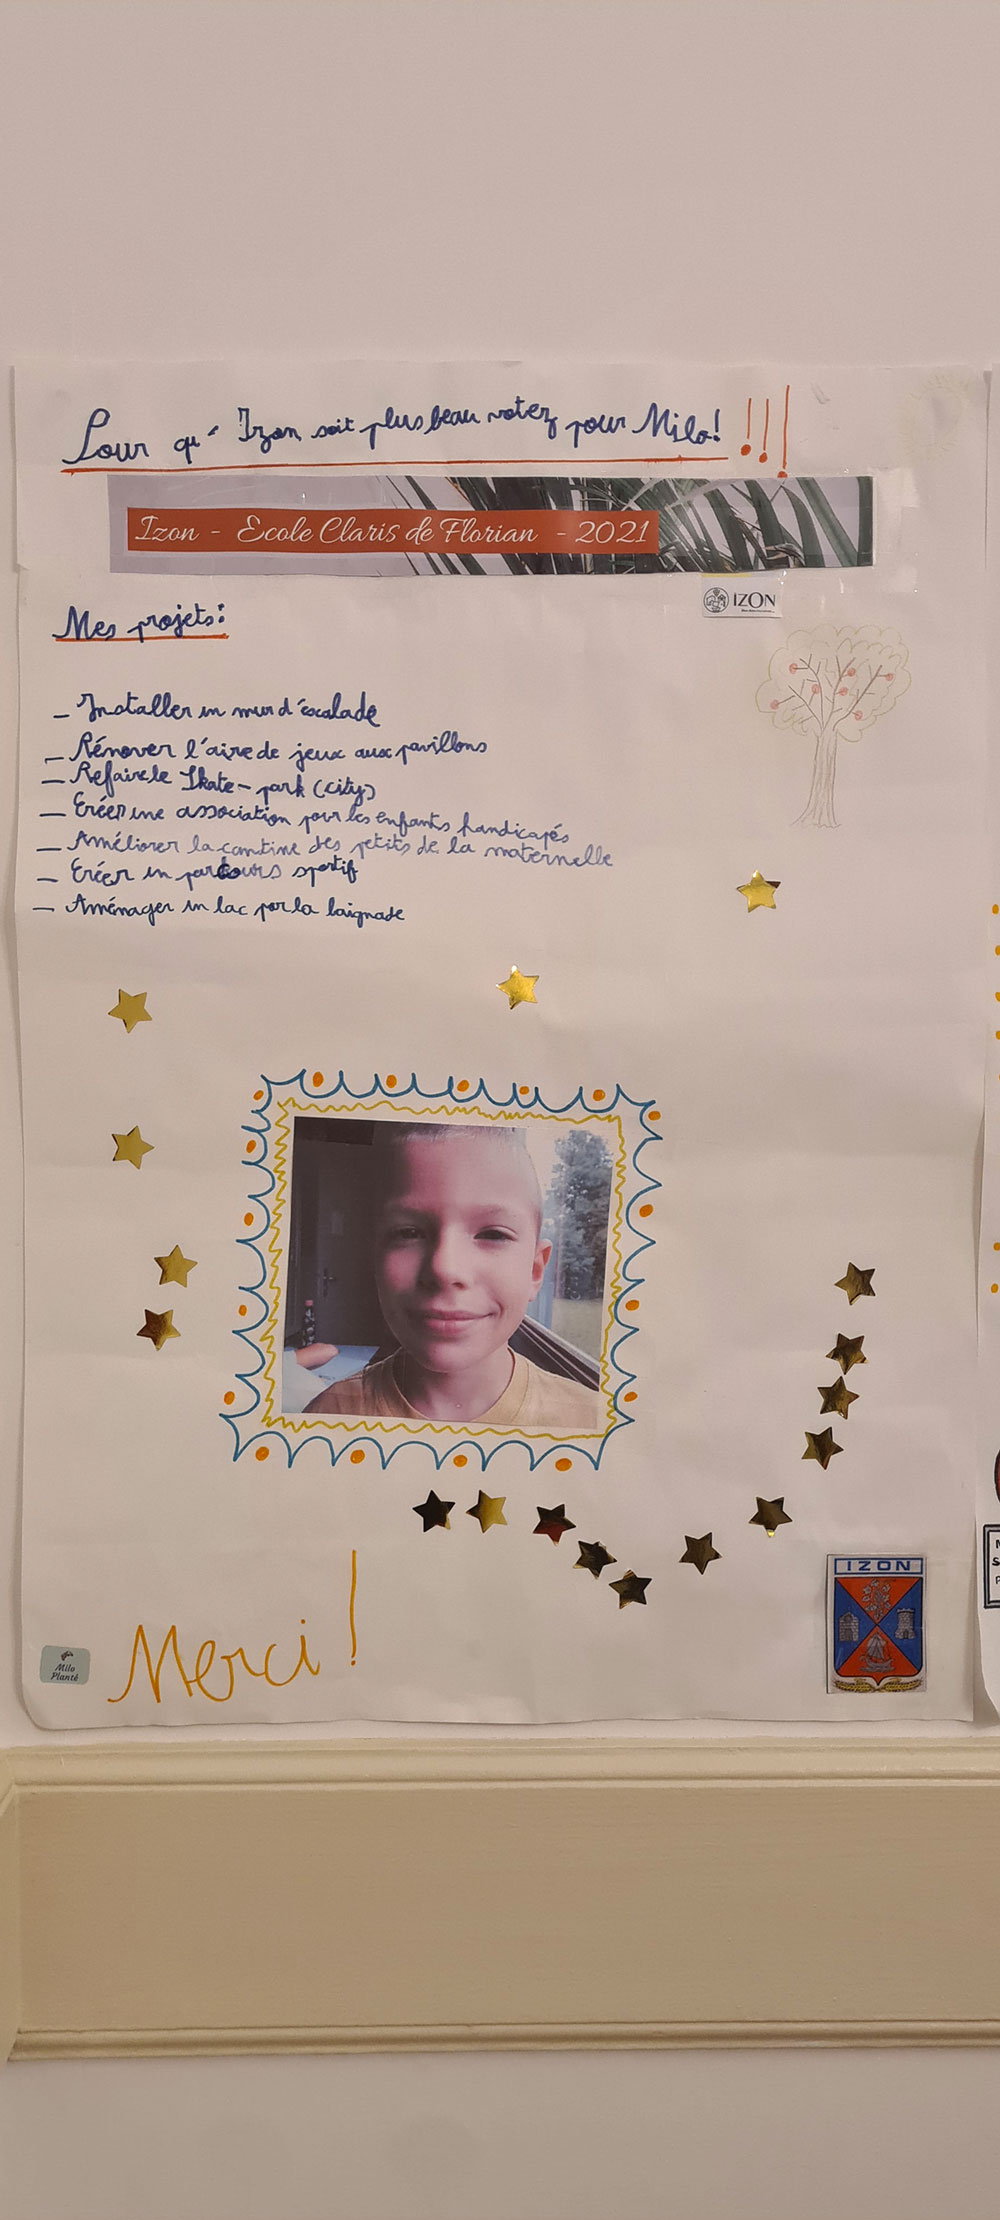 Pour qu' Izon soit plus beau votez pour Milo! !!!
Izon - Ecole Claris de Florian - 2021
IZON
Mes projets:
_ Installer un mur d'éscalade
_ Rénover l'aire de jeux aux pavillons
_ Refaire le Skate-park (city)
_ Créer une association pour les enfants handicapés
_ Améliorer la cantine des petits de la maternelle
_ Créer un parcours sportif
_ Aménager un lac por la baignade
IZON
Merci !
Milo
Planté